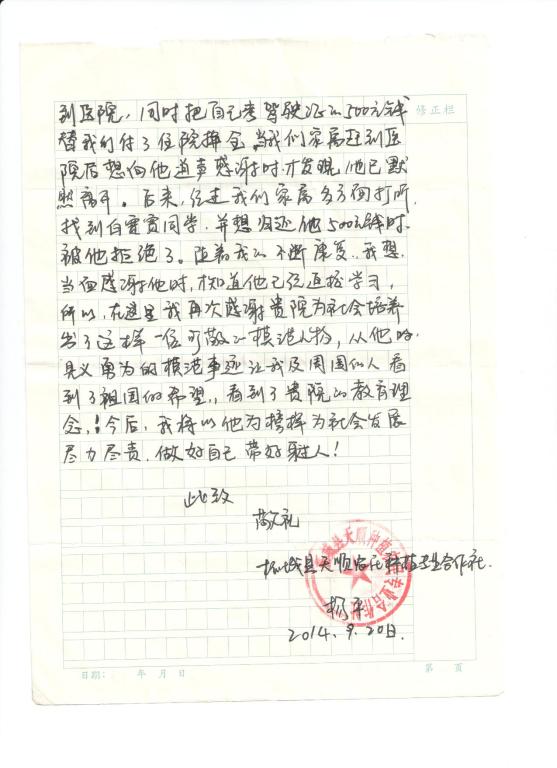 到医院，同时把自己考驾驶证的500元钱
修正栏
替我们付了住院押金。当我们家属赶到医
院后想向他道声感谢时，才发现，他已默
然离开。后来，经过我们家属多方面打听，
找到白雪宾同学，并想归还他500元钱时，
被他拒绝了。随着我的不断康复，我想
当面感谢他时，才知道他已经返校学习，
所以，在这里我再次感谢贵院为社会培养
出了这样一位可敬的模范人物，从他的
见义勇为的模范事迹让我及周围的人看
到了祖国的希望，看到了贵院的教育理
念，！今后，我将以他为榜样为社会发展
尽力尽责，做好自己带好身边人！
此致
敬礼
柘城县天顺农民种植专业合作社
杨平
2014.9.20日.
日期： 年 月 日
第 页